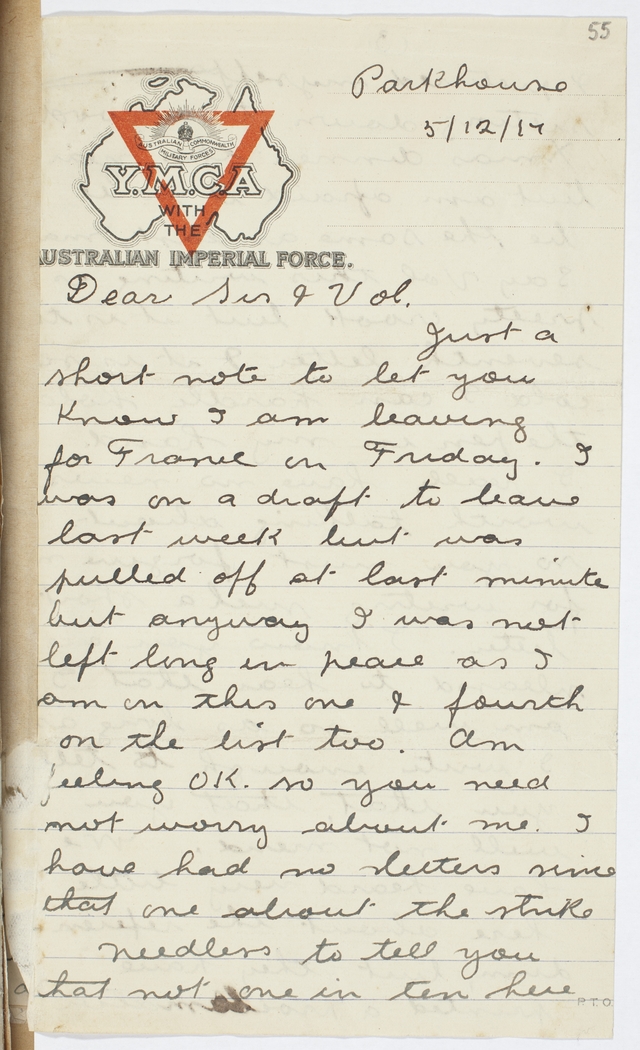 55
Parkhouse
5/12/17
AUSTRALIAN COMMONWEALTH
MILITARY FORCES
Y.M.C.A
WITH
THE
AUSTRALIAN IMPERIAL FORCE.
Dear Sis & Vol.
Just a
short note to let you
know I am leaving
for France on Friday. I
was on a draft to leave
last week but was
pulled off at last minute
but anyway I was not
left long in peace as I
am on this one & fourth
on the list too. Am
feeling OK. so you need
not worry about me. I
have had no letters since
that one about the strike
needless to tell you
that not one in ten here
P.T.O.